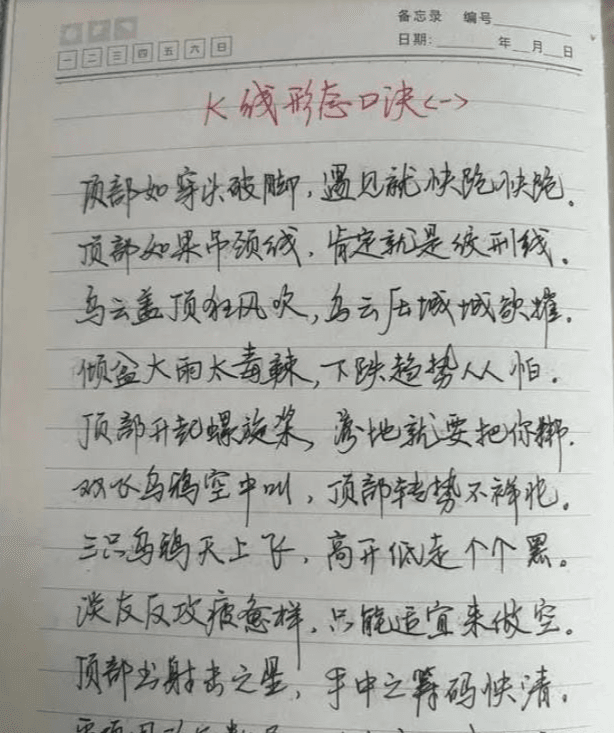 备忘录 编号
一 二 三 四 五 六 日
日期: 年 月 日
K线形态口诀<一>
顶部如穿头破脚,遇见就快跑快跑。
顶部如果吊颈线,肯定就是绞刑线。
乌云盖顶狂风吹,乌云压城城欲摧。
倾盆大雨太毒辣,下跌趋势人人怕。
顶部升起螺旋桨,落地就要把你绑.
双飞乌鸦空中叫,顶部转势不祥兆。
三只乌鸦天上飞,高开低走个个黑。
淡友反攻疲惫样,只能适宜来做空。
顶部出射击之星,手中之筹码快清。